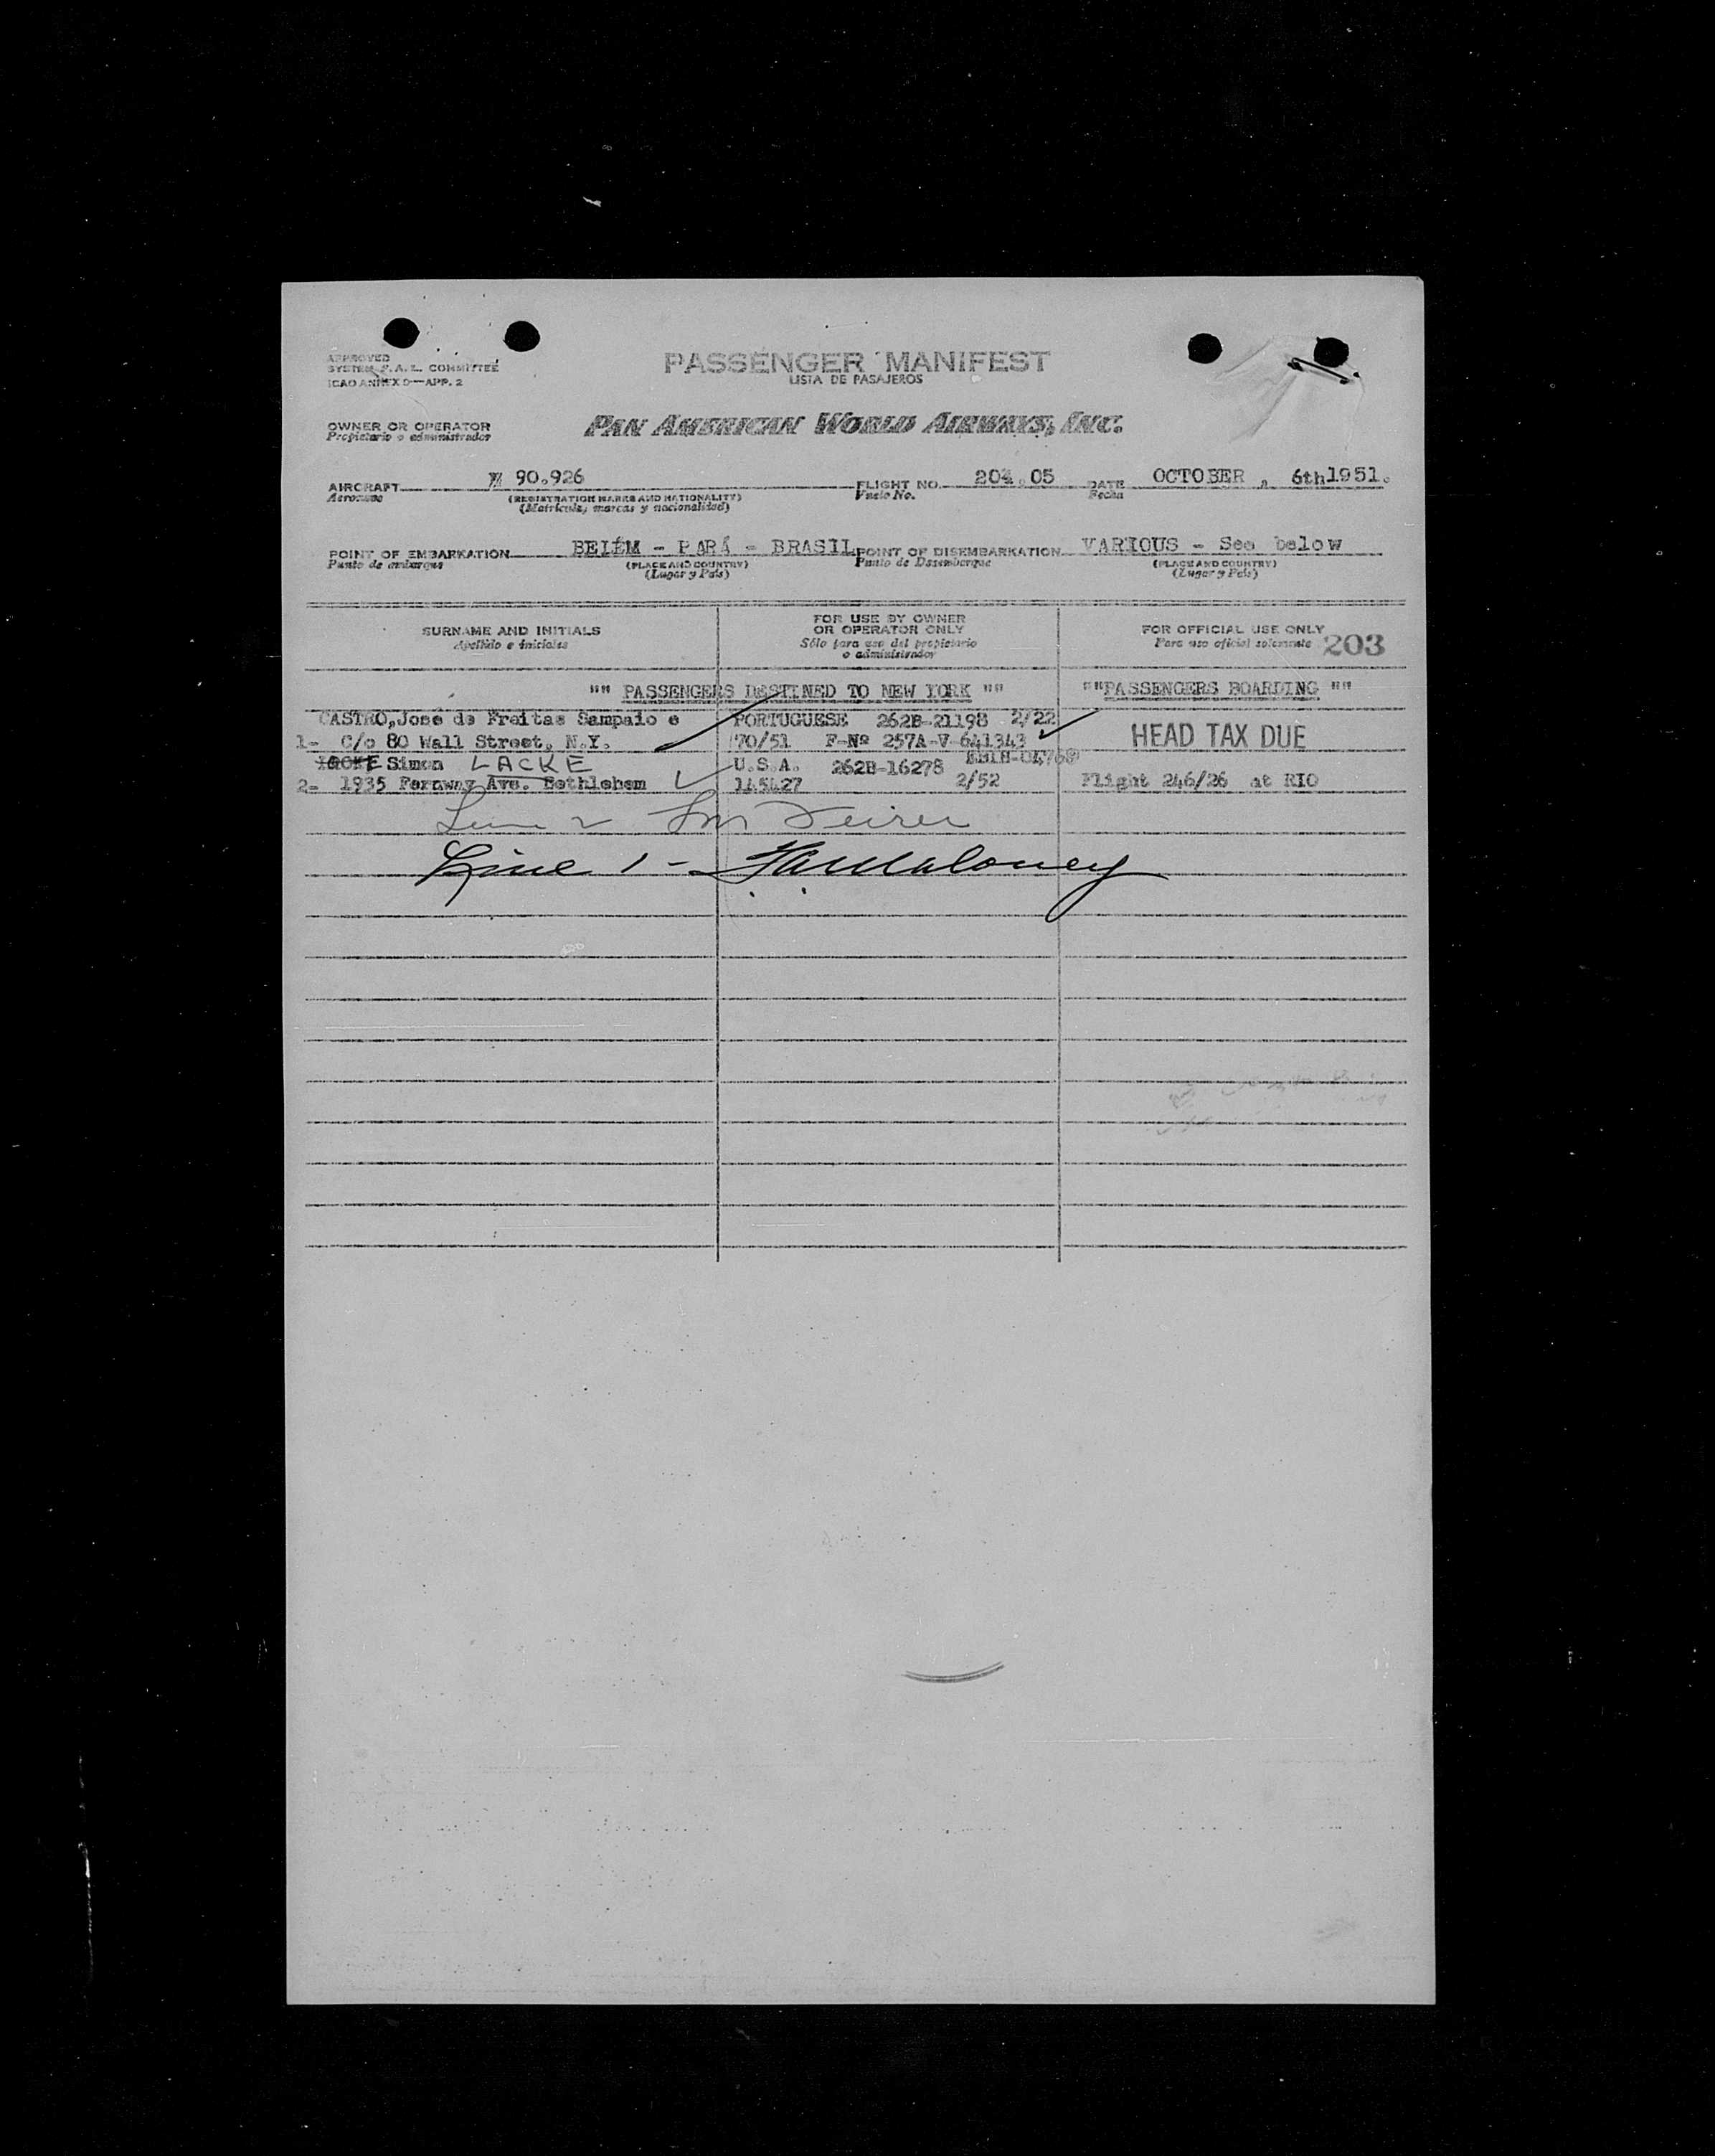 APPROVED
SYSTEM F.A.L. COMMITTEE
ICAO ANNEX 9—APP. 2
PASSENGER MANIFEST
LISTA DE PASAJEROS
OWNER OR OPERATOR
Propietario o administrador
PAN AMERICAN WORLD AIRWAYS, INC.
AIRCRAFT 90.926 FLIGHT NO. 204.05 DATE OCTOBER, 6th 1951.
Aeronave (REGISTRATION MARKS AND NATIONALITY) Vuelo No. Fecha
(Matrícula, marcas y nacionalidad)
POINT OF EMBARKATION BELÉM - PARÁ - BRASIL POINT OF DISEMBARKATION VARIOUS - See below
Punto de embarque (PLACE AND COUNTRY) Punto de Desembarque (PLACE AND COUNTRY)
(Lugar y País) (Lugar y País)
SURNAME AND INITIALS
Apellido e iniciales
FOR USE BY OWNER
OR OPERATOR ONLY
Sólo para uso del propietario
o administrador
FOR OFFICIAL USE ONLY
Para uso oficial solamente 203
"" PASSENGERS DESTINED TO NEW YORK "" ""PASSENGERS BOARDING ""
CASTRO, José de Freitas Sampaio e PORTUGUESE 262B-21198 2/22
1- C/o 80 Wall Street, N.Y. 70/51 F-Nº 257A-V-641343 HEAD TAX DUE
Simon LACKE U.S.A. 262B-16278
2- 1935 Fernway Ave. Bethlehem 145427 2/52 Flight 246/26 at RIO
Line 2
Line 1 - Maloney